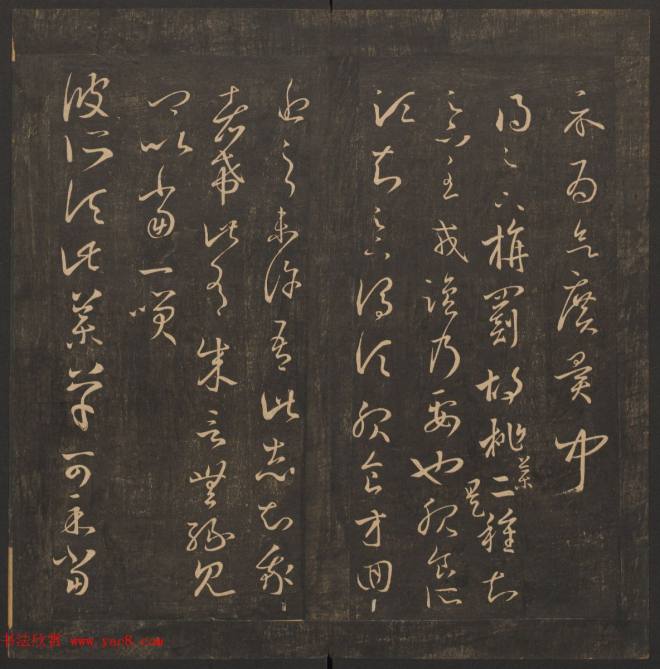 示為欲廣異聞
得足下旃罽胡桃藥二種知
足下至戎鹽乃要也是服食所
須知足下謂須服食方回
近之未許吾此志知我
者希此有成言無緣見
卿以當一笑
彼所須此藥草可示當
书法欣赏 www.yac8.com